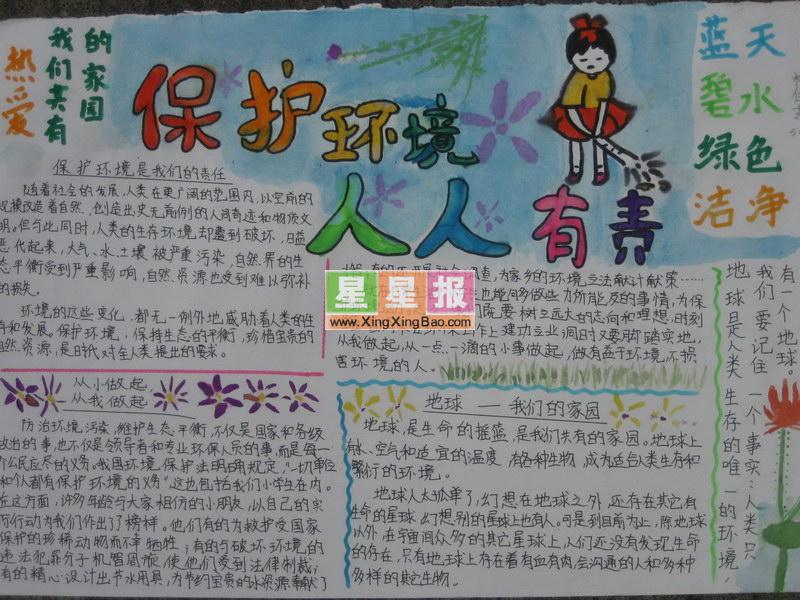 热爱
我们共有
的家园
保护环境
人人有责
蓝天
碧水
绿色
洁净
保护环境是我们的责任
随着社会的发展,人类在更广阔的范围内,以空前的
规模改造着自然,创造出史无前例的人间奇迹和物质文
明。但与此同时,人类的生存环境,却遭到破坏,日益
恶化起来,大气、水、土壤被严重污染,自然界的生
态平衡受到严重影响,自然资源也受到难以弥补
的损失。
环境的这些变化,都无一例外地威胁着人类的生
存和发展。保护环境,保持生态的平衡,珍惜宝贵的
自然资源,是时代对全人类提出的要求。
从小做起,
从我做起
防治环境污染,维护生态平衡,不仅是国家和各级
政府的事,也不仅是领导者和专业环保人员的事,而是每一
个公民应尽的义务。我国环境保护法明确规定,“一切单位
和个人都有保护环境的义务”这也包括我们小学生在内。
在这方面,许多年龄与大家相仿的小朋友,以自己的实
际行动为我们作出了榜样。他们有的为救护受国家
保护的珍稀动物而不幸牺牲;有的与破坏环境的
违法犯罪分子机智周旋,使他们受到法律制裁;
有的精心设计出节水用具,为节约宝贵的水资源奉献了
查,为家乡的环境立法献计献策……
也能间多做些力所能及的事情,为保
要树立远大的志向和理想,时刻
上建功立业,同时又要脚踏实地,
从我做起,从一点一滴的小事做起,做有益于环境,不损
害环境的人。
星星报
www.XingXingBao.com
地球——我们的家园
地球,是生命的摇篮,是我们共有的家园。地球上
有水、空气和适宜的温度,有各种生物,成为适合人类生存和
繁衍的环境。
地球人太孤单了,幻想在地球之外,还存在其它有
生命的星球,幻想别的星球上也有人。可是到目前为止,除地球
以外,在宇宙间众多的其它星球上,人们还没有发现生命
的存在,只有地球上存在着有血有肉,会沟通的人和多种
多样的其它生物。
有一个地球。
我们要记住一个事实:人类只
地球是人类生存的唯一的环境,